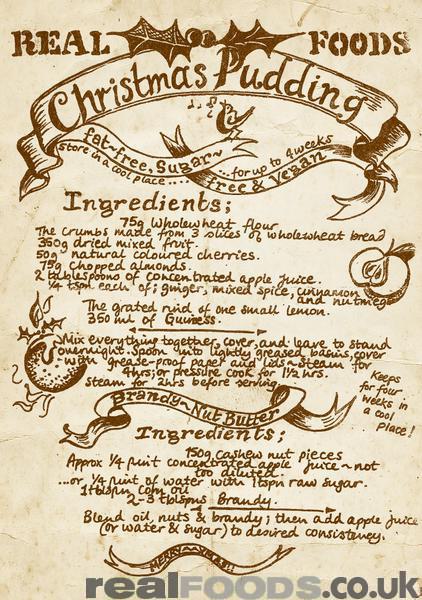 REAL FOODS
Christmas Pudding
fat-free, Sugar~
free & Vegan
Store in a cool place....
...for up to 4 weeks
Ingredients;
75g Wholewheat flour
The crumbs made from 3 slices of wholewheat bread
350g dried mixed fruit.
50g natural coloured cherries.
75g chopped almonds.
2 tablespoons of concentrated apple juice
1/4 tspn each of; ginger, mixed spice, cinnamon
and nutmeg
The grated rind of one small lemon.
350 ml of Guiness.
Mix everything together, cover, and leave to stand
overnight. Spoon into lightly greased basins, cover
with grease-proof paper and lids~Steam for
4hrs; or pressure cook for 1½ hrs.
Steam for 2hrs before serving.
Keeps
for four
weeks in
a cool
Place!
Brandy~Nut Butter
Ingredients;
150g cashew nut pieces
Approx 1/4 pint concentrated apple juice ~ not
too diluted.
...or, 1/4 pint of water with 1tspn raw sugar.
1 tblspn corn oil
2-3 tblspns Brandy.
Blend oil, nuts & brandy; then add apple juice
(or water & sugar) to desired consistency.
realFOODS.co.uk